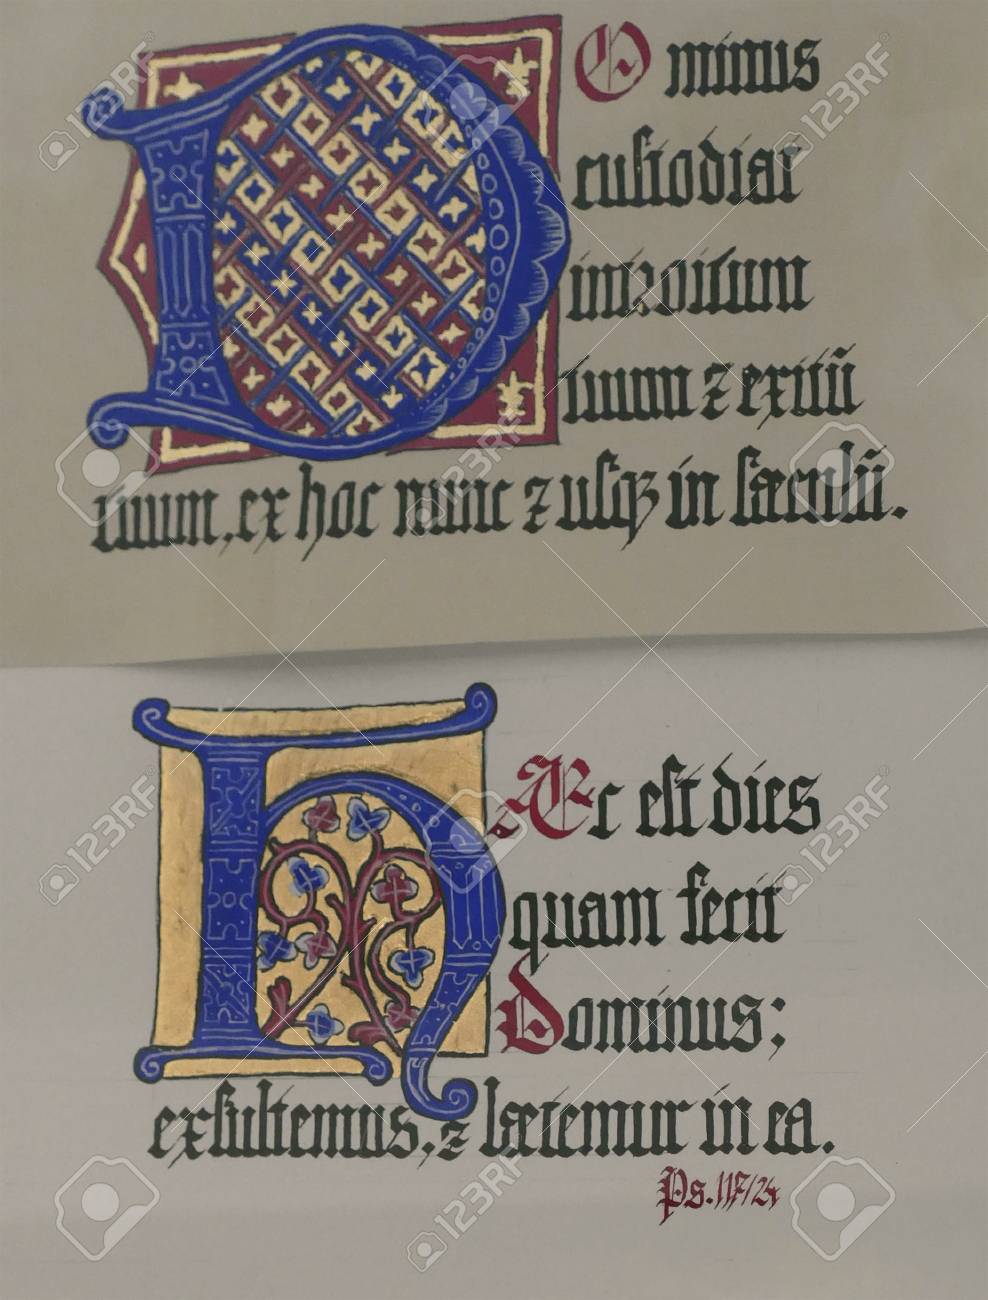 DOminus
custodiat
introitum
tuum ⁊ exitū
tuum, ex hoc nunc ⁊ usqꝫ in sæculū.
HÆc est dies
quam fecit
Dominus;
exsultemus, ⁊ lætemur in ea.
Ps. 117/24
123RF